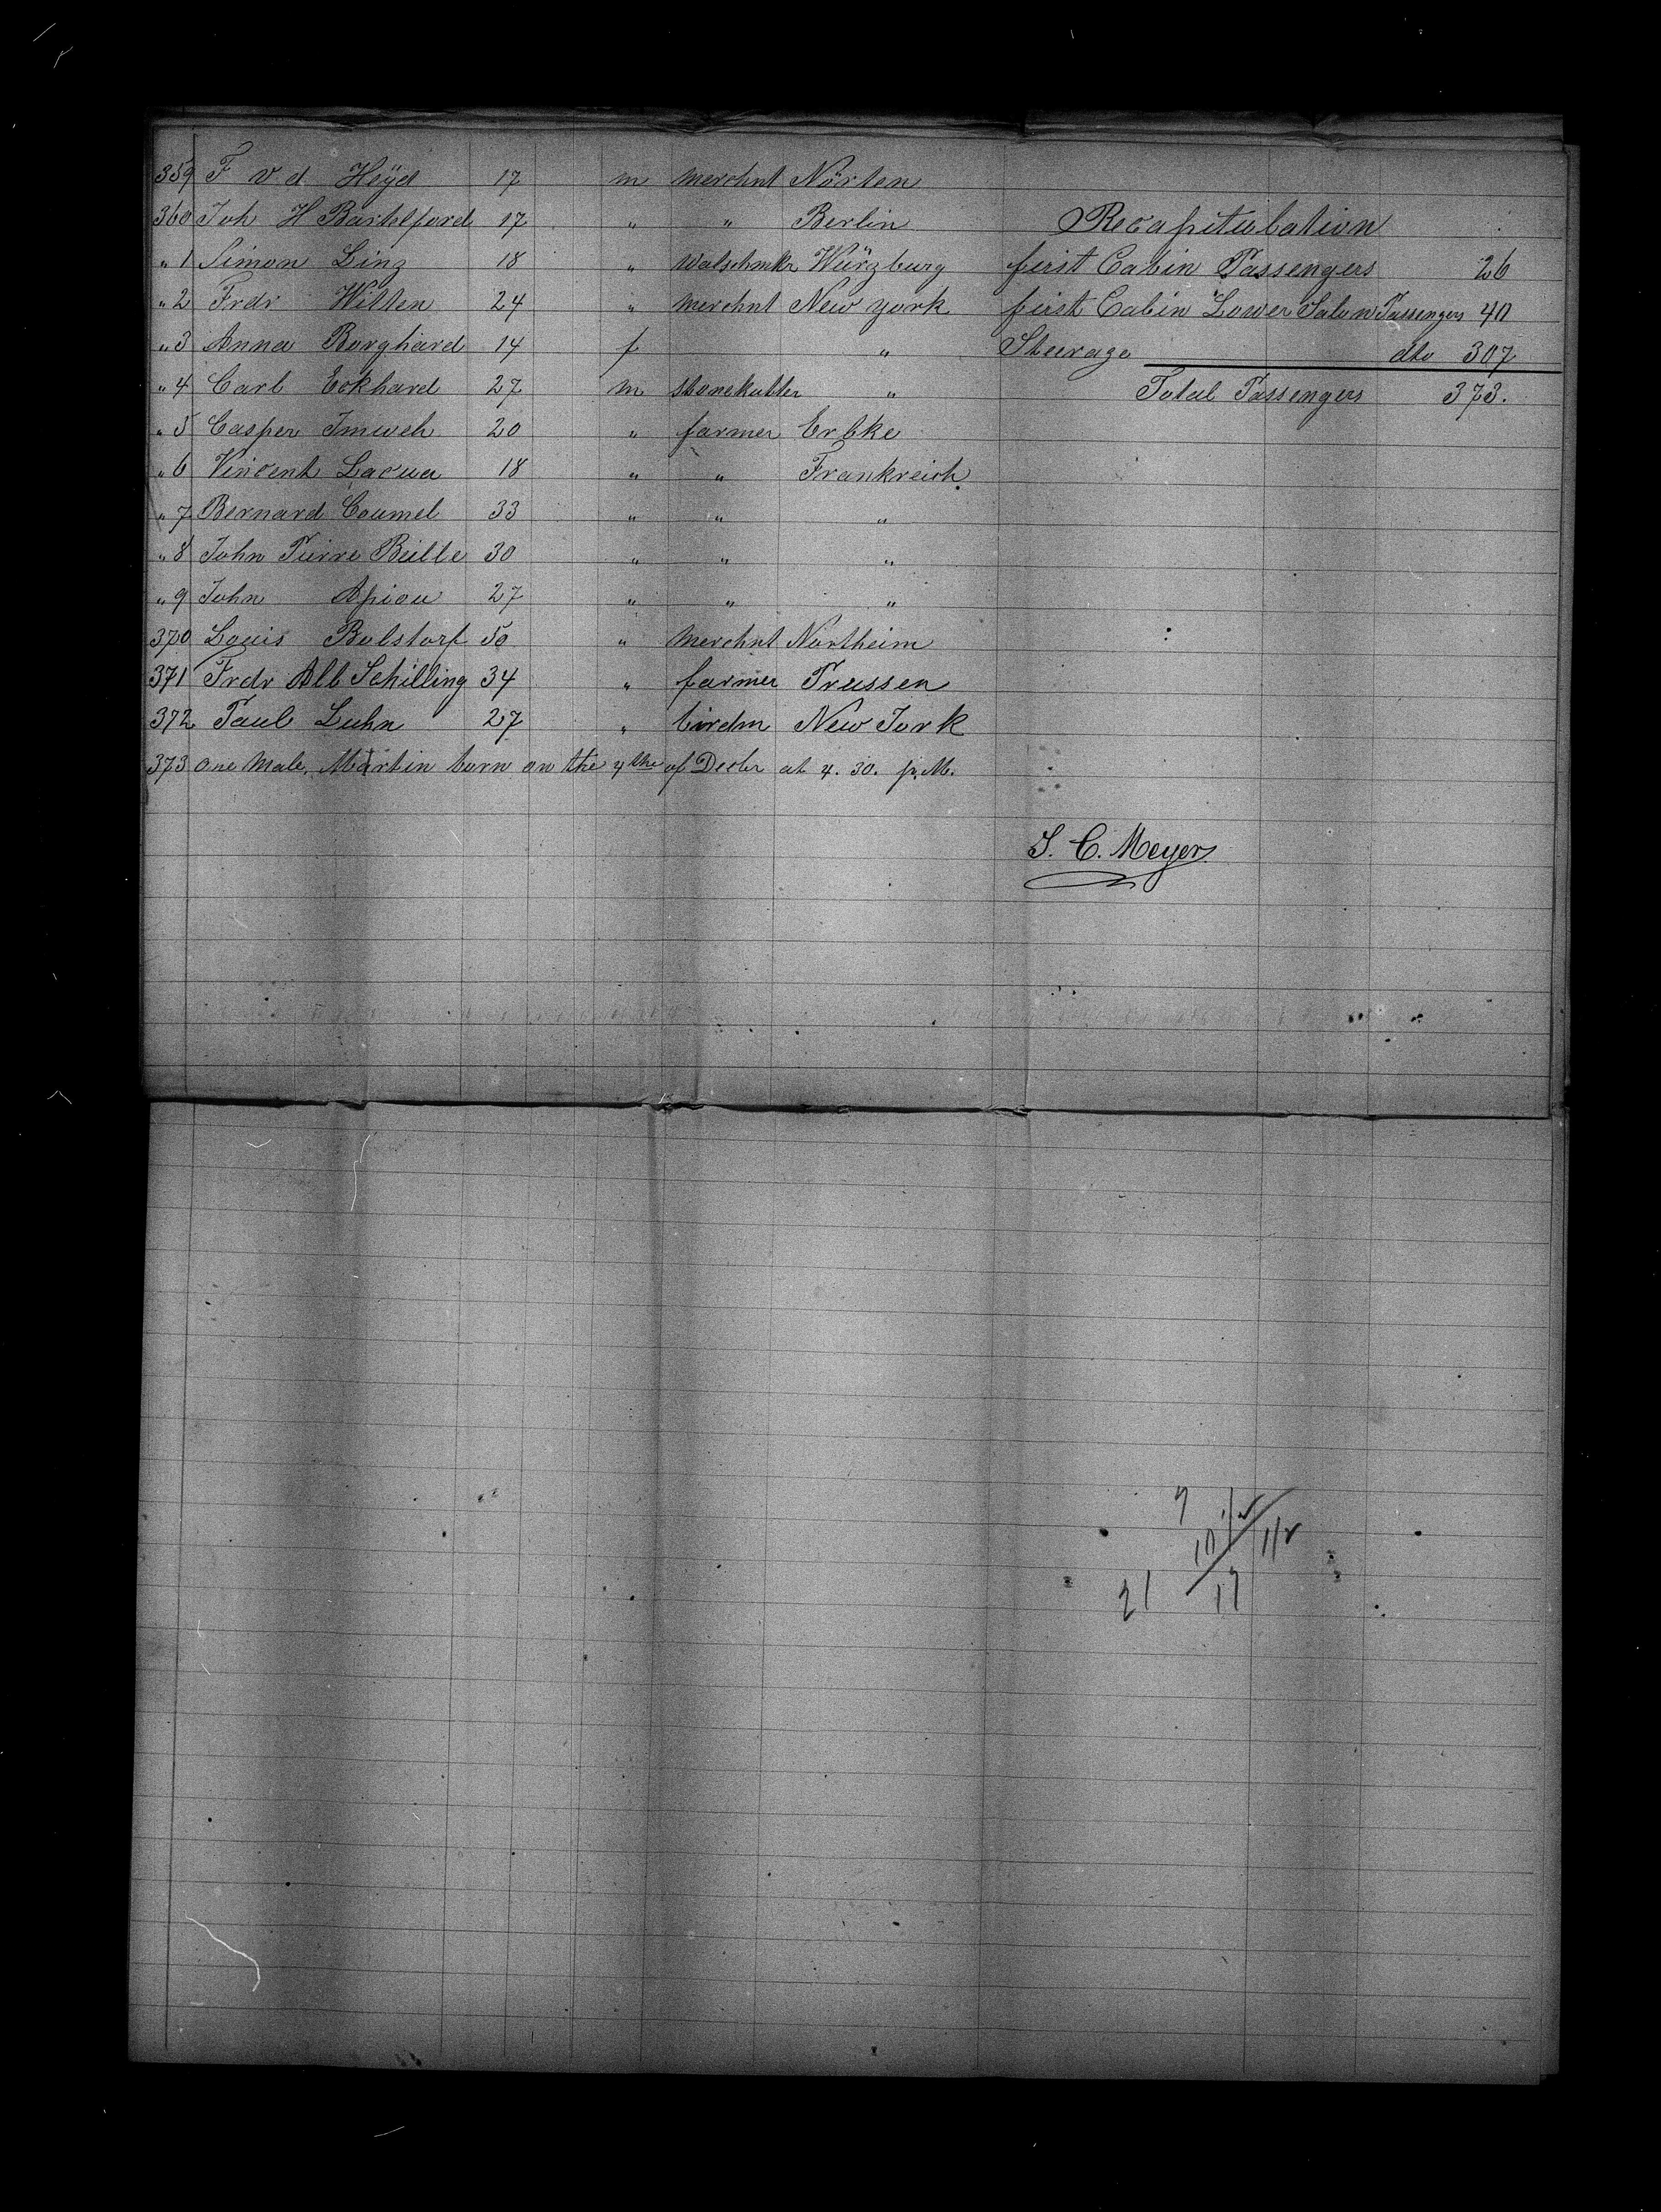 359 F v. d. Heÿd 17 m merchnt Nörten
360 Joh H Barkelpord 17 " " Berlin
Recapitulation
" 1 Simon Linz 18 " Watschmkr Würzburg
first Cabin Passengers 26
" 2 Frdr Wilten 24 " merchnt New york
first Cabin Lower Salon Passengers 40
" 3 Anna Borghard 14 f "
Steerage dto 307
" 4 Carl Eckhard 27 m stonekutter "
Total Passengers 373.
" 5 Casper Imweh 20 " farmer Erbke
" 6 Vincent Lacua 18 " " Frankreich
" 7 Bernard Coumel 33 " " "
" 8 John Pierre Beille 30 " " "
" 9 John Apiou 27 " " "
370 Louis Bolstorf 50 " merchnt Northeim
371 Frdr Alb Schilling 34 " farmer Prussen
372 Paul Luhn 27 " birdm New York
373 one Male, Martin born on the 4the of Decbr at 4. 30. p. M.
S. C. Meyer
21 17